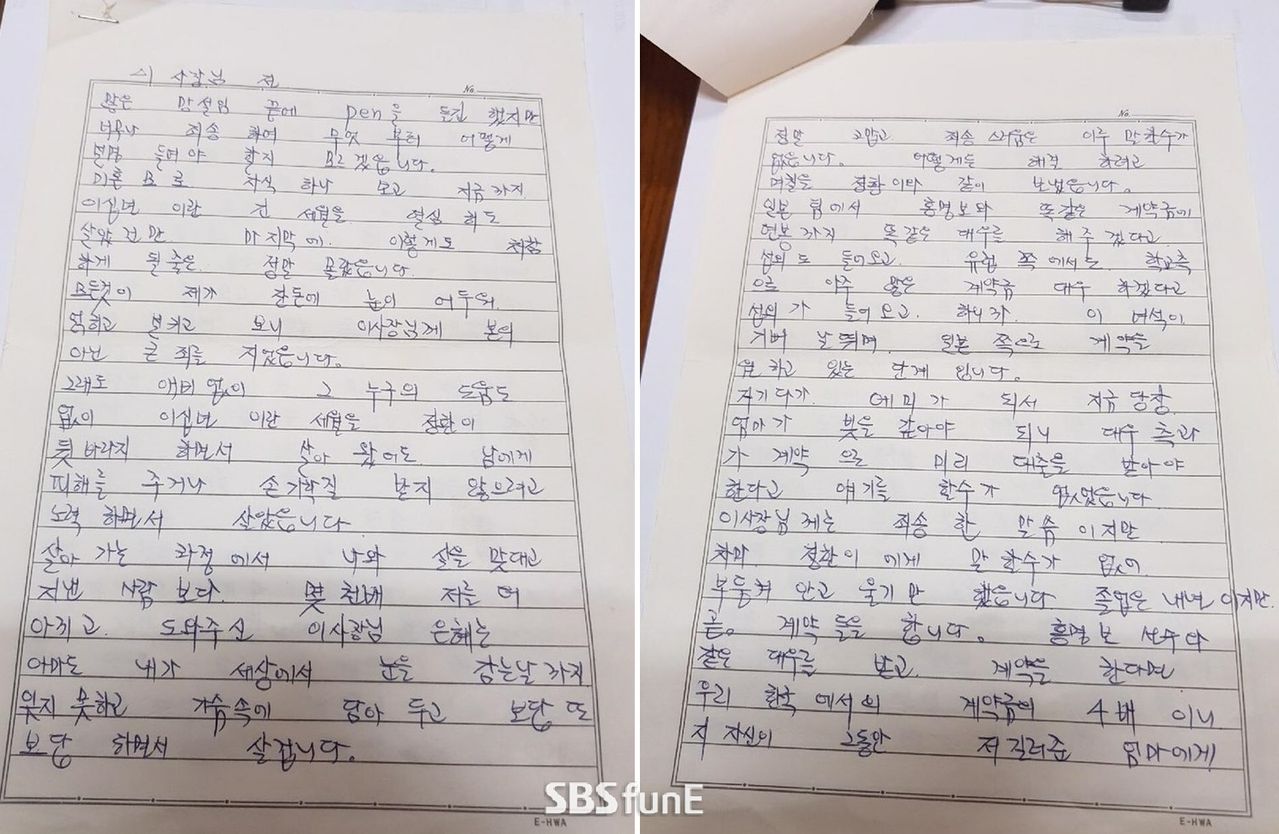 이 사장님 전
No.
많은 망설임 끝에 pen을 들긴 했지만
너무나 죄송하여 무엇부터 어떻게
변명 들려야 할지 모르겠습니다.
자식 하나 보고 지금까지
이십년이란 긴 세월을 열심히도
살았건만 마지막에 이렇게도 처참
하게 될 줄은 정말 몰랐습니다.
모든것이 제가 잔돈에 눈이 어두워
얽히고 설키고 보니 이사장님께 본의
아닌 큰 죄를 지었습니다.
그래도 애비없이 그 누구의 도움도
없이 이십년이란 세월을 정환이
뒷바라지 하면서 살아 왔어도 남에게
피해를 주거나 손가락질 받지 않으려고
노력 하면서 살았습니다
살아 가는 과정에서 나와 살을 맞대고
지낸 사람 보다 몇 천배 저를 더
아끼고 도와주신 이사장님 은혜는
아마도 내가 세상에서 눈을 감는날까지
잊지 못하고 가슴속에 담아 두고 보답 또
보답 하면서 살겁니다.
E-HWA
No.
정말 고맙고 죄송스러움은 이루 말할수가
없습니다. 어떻게든 해결 하려고
며칠을 정환이랑 같이 보냈습니다.
일본 팀에서 홍명보와 똑같은 계약금에
연봉까지 똑같은 대우를 해 주겠다고
섭외도 들어오고. 유럽 쪽에서는 학교측
으로 아주 많은 계약금 대우 하겠다고
섭외가 들어오고. 하니까 이 녀석이
자꾸 날뛰며 일본 쪽으로 계약을
원하고 있는 단계 입니다.
거기다가 에미가 되서 지금 당장
엄마가 빚을 갚아야 되니 대우 측과
가계약으로 미리 대출을 받아야
한다고 얘기를 할수가 없었습니다
이사장님께는 죄송한 말씀이지만
차마 정환이에게 말 할수가 없어
부둥켜 안고 울기만 했습니다 졸업은 내년이지만.
곧. 계약들을 합니다. 홍명보 선수와
같은 대우를 받고 계약을 한다면
우리 한국에서의 계약금에 4배이니
지 자신이 그동안 저 길러준 엄마에게
E-HWA
SBS funE